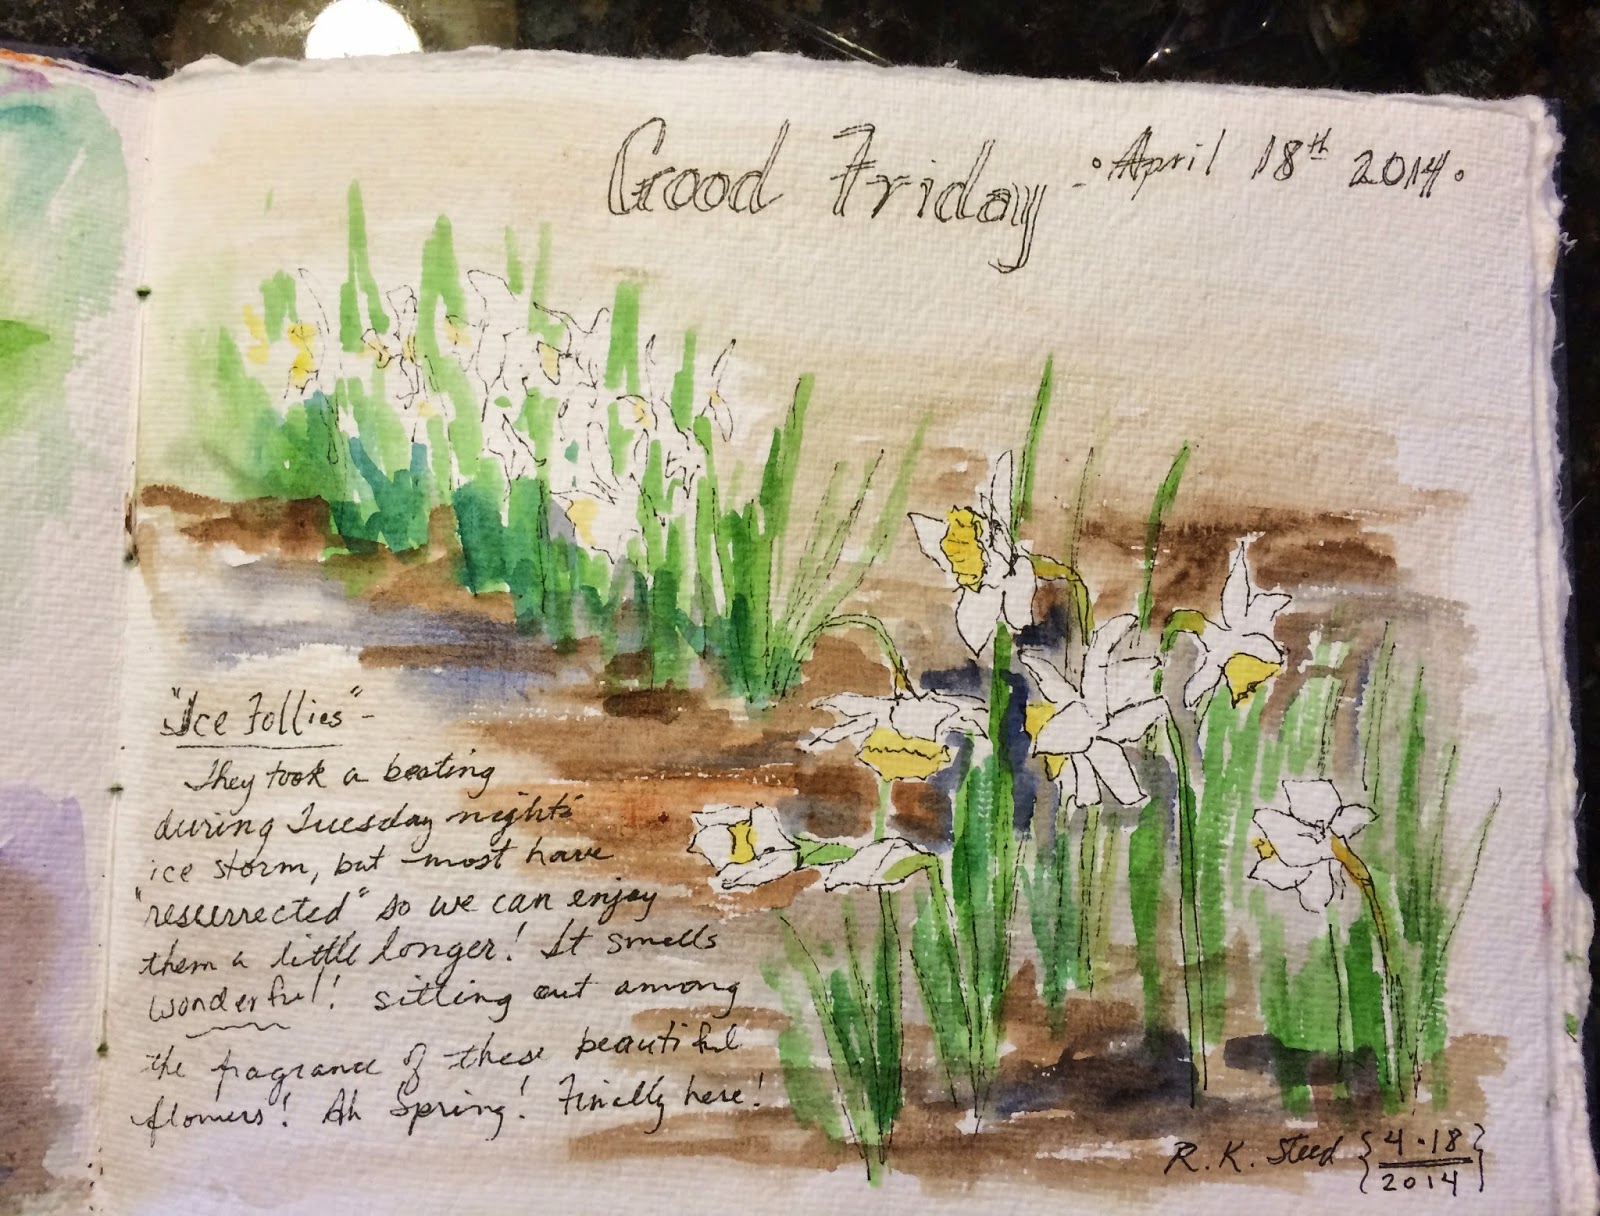 Good Friday · April 18th 2014 ·
"Ice Follies" -
They took a beating
during Tuesday night's
ice storm, but most have
"resurrected" so we can enjoy
them a little longer! It smells
wonderful! sitting out among
the fragrance of these beautiful
flowers! Ah Spring! Finally here!
R. K. Steed {4·18
2014}